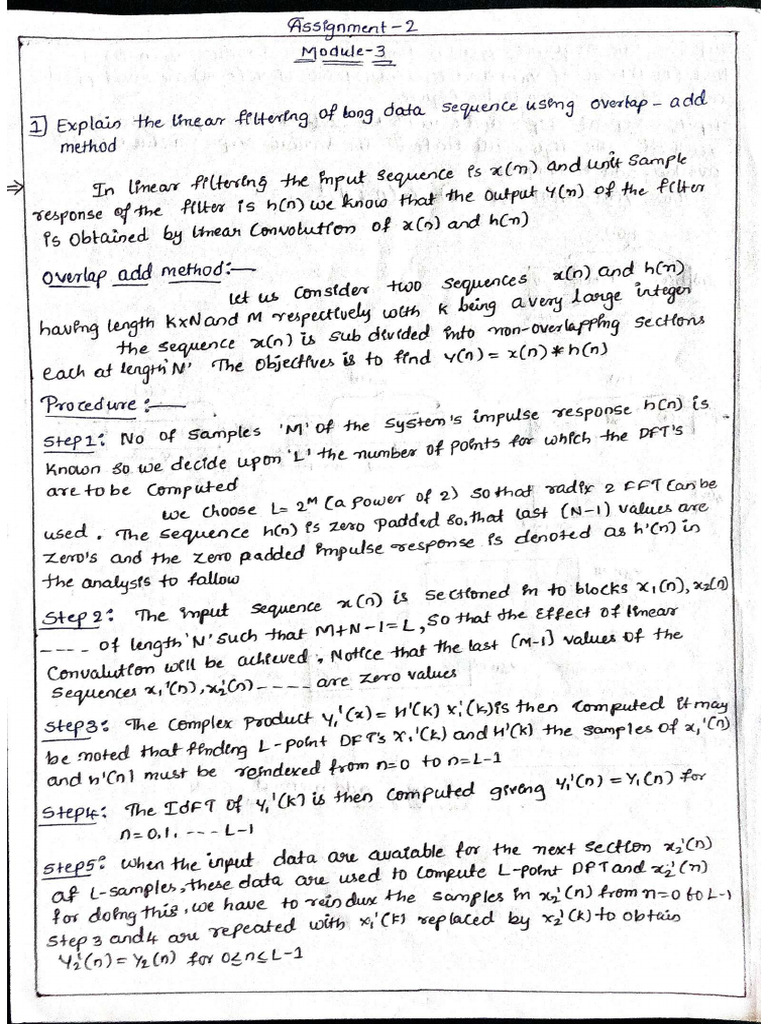 Assignment-2
Module-3
1] Explain the linear filtering of long data sequence using overlap-add
method
⇒ In linear filtering the input sequence is x(n) and unit sample
response of the filter is h(n) we know that the output y(n) of the filter
is obtained by linear convolution of x(n) and h(n)
Overlap add method:-
let us consider two sequences x(n) and h(n)
having length K×N and M respectively with K being a very large integer
the sequence x(n) is sub divided into non-overlapping sections
each at length 'N' The objectives is to find y(n) = x(n) * h(n)
Procedure:-
Step1: No of samples 'M' of the system's impulse response h(n) is
known so we decide upon 'L' the number of points for which the DFT's
are to be computed
we choose L= 2^M (a power of 2) so that radix 2 FFT can be
used. The sequence h(n) is zero padded so, that last (N-1) values are
zero's and the zero padded impulse response is denoted as h'(n) in
the analysis to fallow
Step2: The input sequence x(n) is sectioned in to blocks x₁(n), x₂(n)
---- of length 'N' such that M+N-1=L, so that the effect of linear
Convalution will be achieved. Notice that the last (M-1) values of the
sequences x₁'(n), x₂'(n) ---- are zero values
Step3: The complex product Y₁'(x) = H'(k) x₁'(k) is then computed it may
be noted that finding L-point DFT's X₁'(k) and H'(k) the samples of x₁'(n)
and h'(n) must be reindexed from n=0 to n=L-1
Step4: The IdFT of Y₁'(k) is then computed giveng y₁'(n) = y₁(n) for
n=0,1, --- L-1
Step5: When the input data are avaiable for the next section x₂'(n)
of L-samples, these data are used to compute L-point DFT and x₂'(n)
for doing this, we have to reindux the samples in x₂'(n) from n=0 to L-1
Step 3 and 4 are repeated with x₁'(k) replaced by x₂'(k) to obtain
y₂'(n) = y₂(n) for 0≤n≤L-1